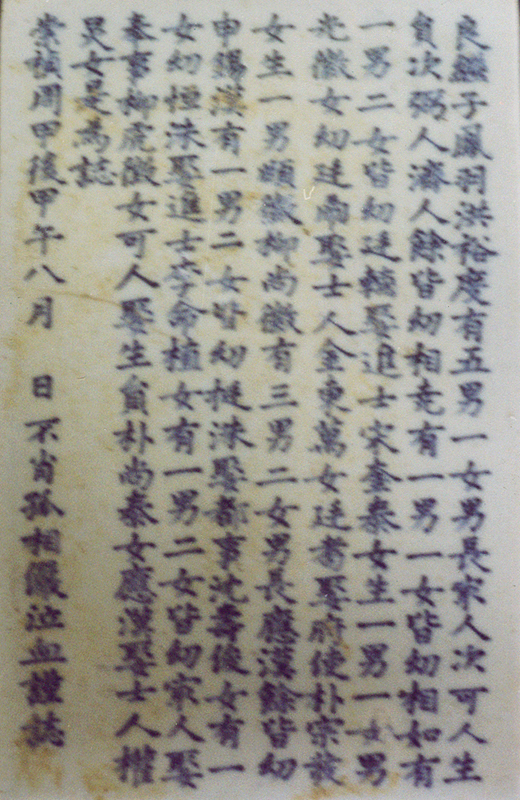 良鑑子鳳羽洪裕慶有五男一女男長家人次可人生
負次弼人濟人餘皆幼相堯有一男一女皆幼相如有
一男二女皆幼廷極娶進士宋奎泰女生一男一女男
光徽女幼廷鼎娶士人金東萬女廷耇娶府使朴宗
女生一男頤徽柳尚徽有三男二女男長應漢餘皆幼
申錫漢有一男二女皆幼挺洙娶都事沈壽俊女有一
女幼恒洙娶進士李命植女有一男二女皆幼家人娶
奉事柳徽女可人娶生負朴尚泰女應漢娶士人權
炅女是為誌
崇禎周甲後甲午八月　日不肖孤相儼泣血謹誌